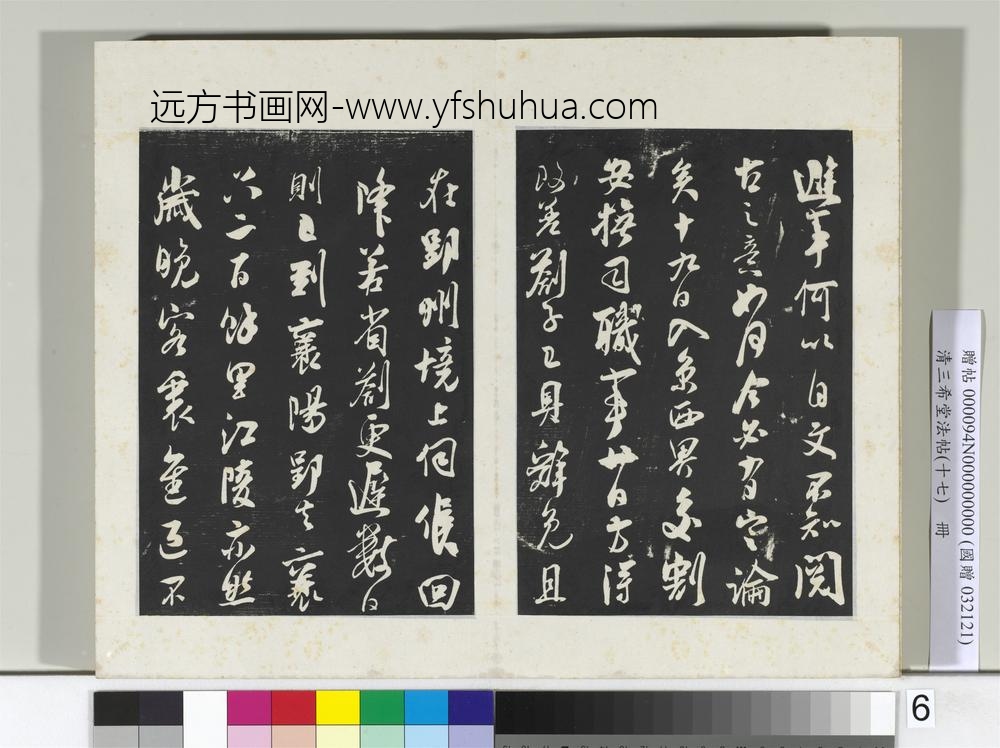 远方书画网-www.yfshuhua.com
進率何以自文不知閤
古之意如何今必有定論
矣十九日入京西界交割
安撫司職事廿日方得
改差劄子已具辭免且
在郢州境上伺候回
降若省劄更遲數日
則已到襄陽郢去襄
只二百餘里江陵亦然
歲晚客裏進退不
贈帖 000094N000000000 (國贈 032121)
清三希堂法帖(十七) 冊
6